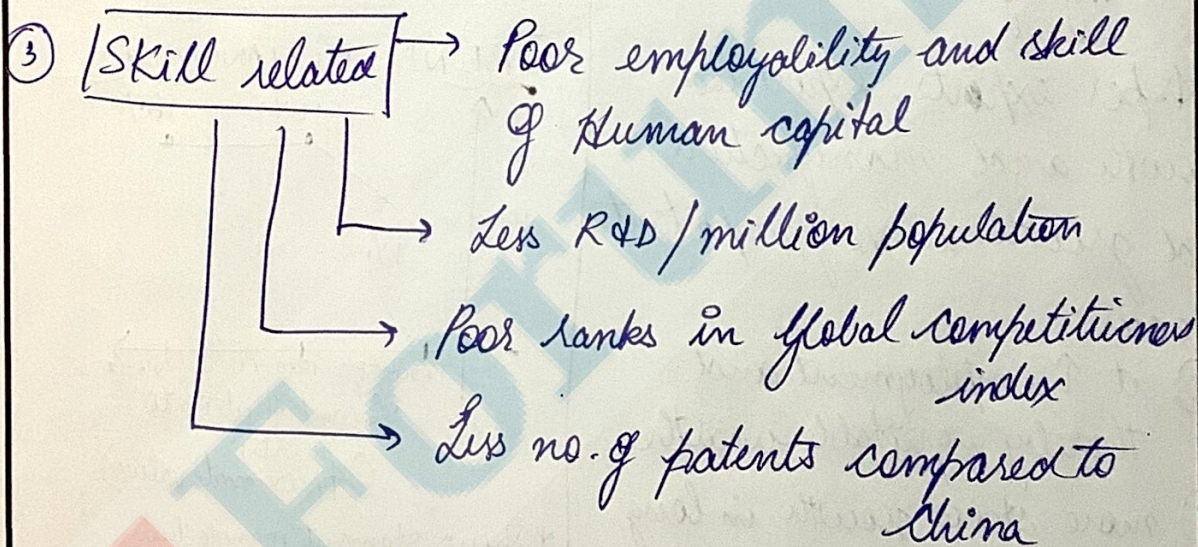 ③ Skill related → Poor employability and skill
of Human capital
→ Less R&D/million population
→ Poor ranks in Global competitiveness
index
→ Less no. of patents compared to
China
Forum